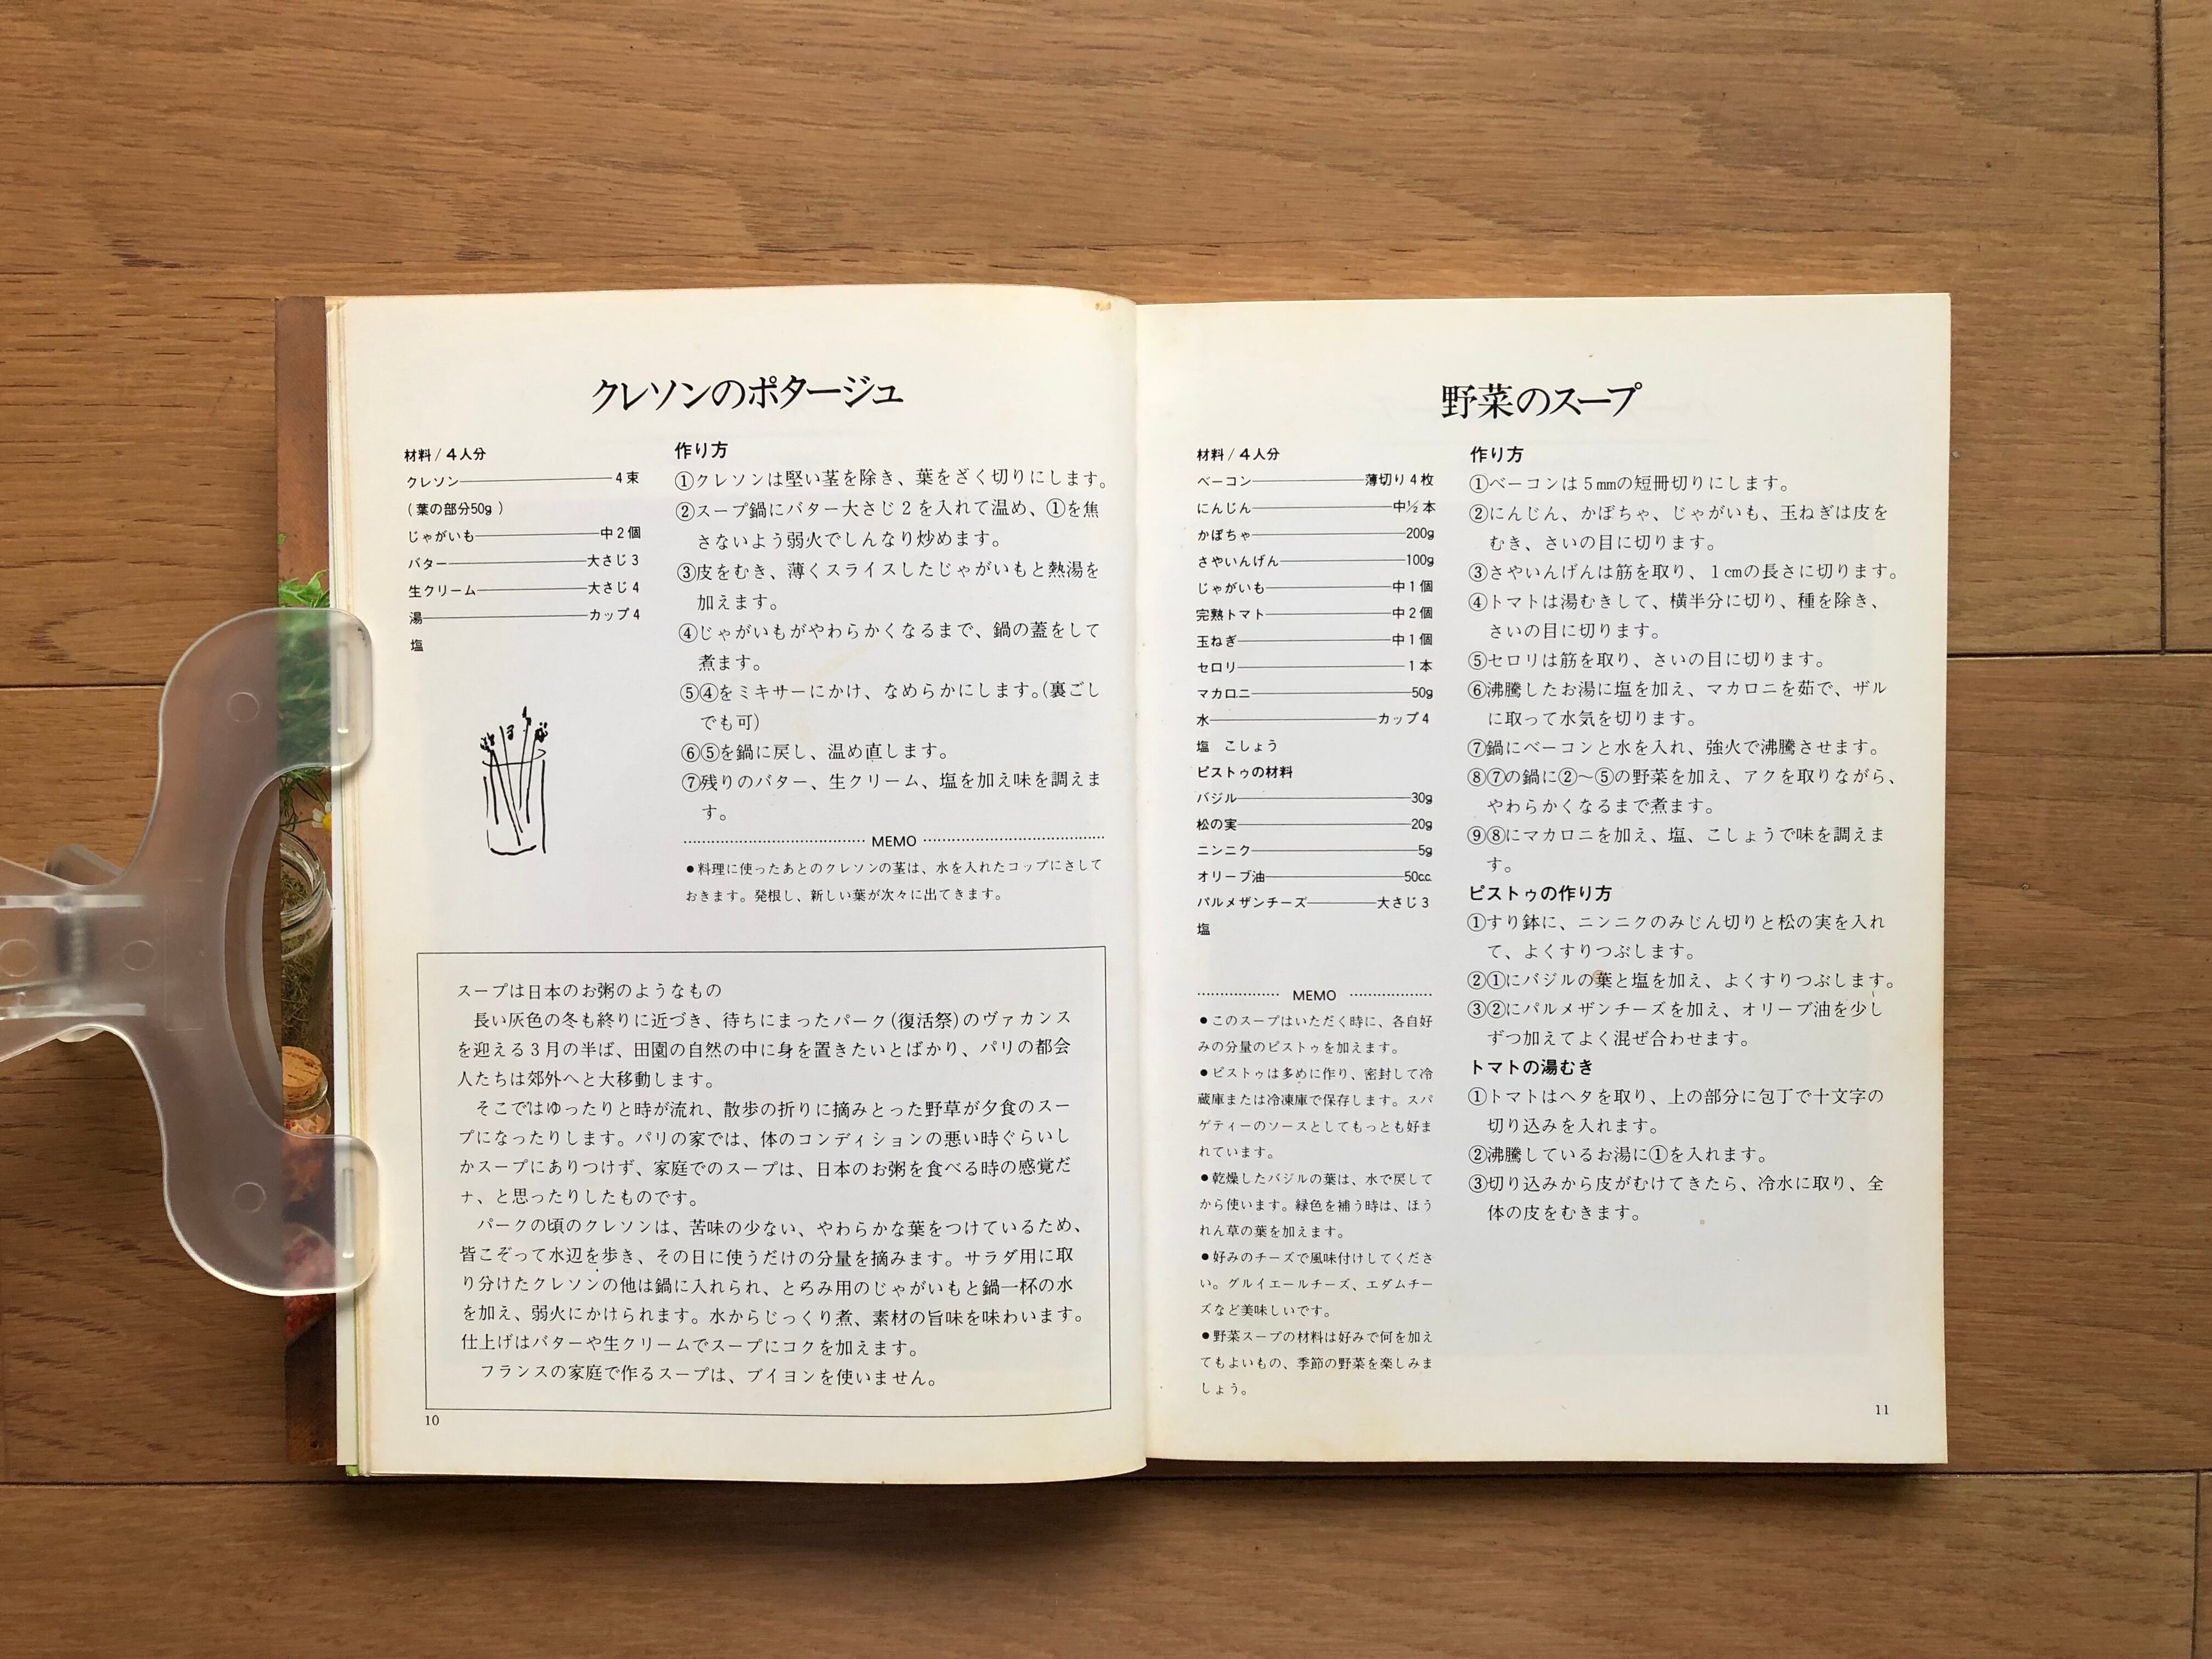 クレソンのポタージュ
材料/4人分
クレソン 4束
(葉の部分50g)
じゃがいも 中2個
バター 大さじ3
生クリーム 大さじ4
湯 カップ4
塩
作り方
①クレソンは堅い茎を除き、葉をざく切りにします。
②スープ鍋にバター大さじ2を入れて温め、①を焦
さないよう弱火でしんなり炒めます。
③皮をむき、薄くスライスしたじゃがいもと熱湯を
加えます。
④じゃがいもがやわらかくなるまで、鍋の蓋をして
煮ます。
⑤④をミキサーにかけ、なめらかにします。(裏ごし
でも可)
⑥⑤を鍋に戻し、温め直します。
⑦残りのバター、生クリーム、塩を加え味を調えま
す。
MEMO
●料理に使ったあとのクレソンの茎は、水を入れたコップにさして
おきます。発根し、新しい葉が次々に出てきます。
スープは日本のお粥のようなもの
長い灰色の冬も終りに近づき、待ちにまったパーク(復活祭)のヴァカンス
を迎える3月の半ば、田園の自然の中に身を置きたいとばかり、パリの都会
人たちは郊外へと大移動します。
そこではゆったりと時が流れ、散歩の折りに摘みとった野草が夕食のスー
プになったりします。パリの家では、体のコンディションの悪い時ぐらいし
かスープにありつけず、家庭でのスープは、日本のお粥を食べる時の感覚だ
ナ、と思ったりしたものです。
パークの頃のクレソンは、苦味の少ない、やわらかな葉をつけているため、
皆こぞって水辺を歩き、その日に使うだけの分量を摘みます。サラダ用に取
り分けたクレソンの他は鍋に入れられ、とろみ用のじゃがいもと鍋一杯の水
を加え、弱火にかけられます。水からじっくり煮、素材の旨味を味わいます。
仕上げはバターや生クリームでスープにコクを加えます。
フランスの家庭で作るスープは、ブイヨンを使いません。
10
野菜のスープ
材料/4人分
ベーコン 薄切り4枚
にんじん 中½本
かぼちゃ 200g
さやいんげん 100g
じゃがいも 中1個
完熟トマト 中2個
玉ねぎ 中1個
セロリ 1本
マカロニ 50g
水 カップ4
塩 こしょう
ピストゥの材料
バジル 30g
松の実 20g
ニンニク 5g
オリーブ油 50c.c.
パルメザンチーズ 大さじ3
塩
MEMO
●このスープはいただく時に、各自好
みの分量のピストゥを加えます。
●ピストゥは多めに作り、密封して冷
蔵庫または冷凍庫で保存します。スパ
ゲティーのソースとしてもっとも好ま
れています。
●乾燥したバジルの葉は、水で戻して
から使います。緑色を補う時は、ほう
れん草の葉を加えます。
●好みのチーズで風味付けしてくださ
い。グルイエールチーズ、エダムチー
ズなど美味しいです。
●野菜スープの材料は好みで何を加え
てもよいもの、季節の野菜を楽しみま
しょう。
作り方
①ベーコンは5mmの短冊切りにします。
②にんじん、かぼちゃ、じゃがいも、玉ねぎは皮を
むき、さいの目に切ります。
③さやいんげんは筋を取り、1cmの長さに切ります。
④トマトは湯むきして、横半分に切り、種を除き、
さいの目に切ります。
⑤セロリは筋を取り、さいの目に切ります。
⑥沸騰したお湯に塩を加え、マカロニを茹で、ザル
に取って水気を切ります。
⑦鍋にベーコンと水を入れ、強火で沸騰させます。
⑧⑦の鍋に②〜⑤の野菜を加え、アクを取りながら、
やわらかくなるまで煮ます。
⑨⑧にマカロニを加え、塩、こしょうで味を調えま
す。
ピストゥの作り方
①すり鉢に、ニンニクのみじん切りと松の実を入れ
て、よくすりつぶします。
②①にバジルの葉と塩を加え、よくすりつぶします。
③②にパルメザンチーズを加え、オリーブ油を少し
ずつ加えてよく混ぜ合わせます。
トマトの湯むき
①トマトはヘタを取り、上の部分に包丁で十文字の
切り込みを入れます。
②沸騰しているお湯に①を入れます。
③切り込みから皮がむけてきたら、冷水に取り、全
体の皮をむきます。
11